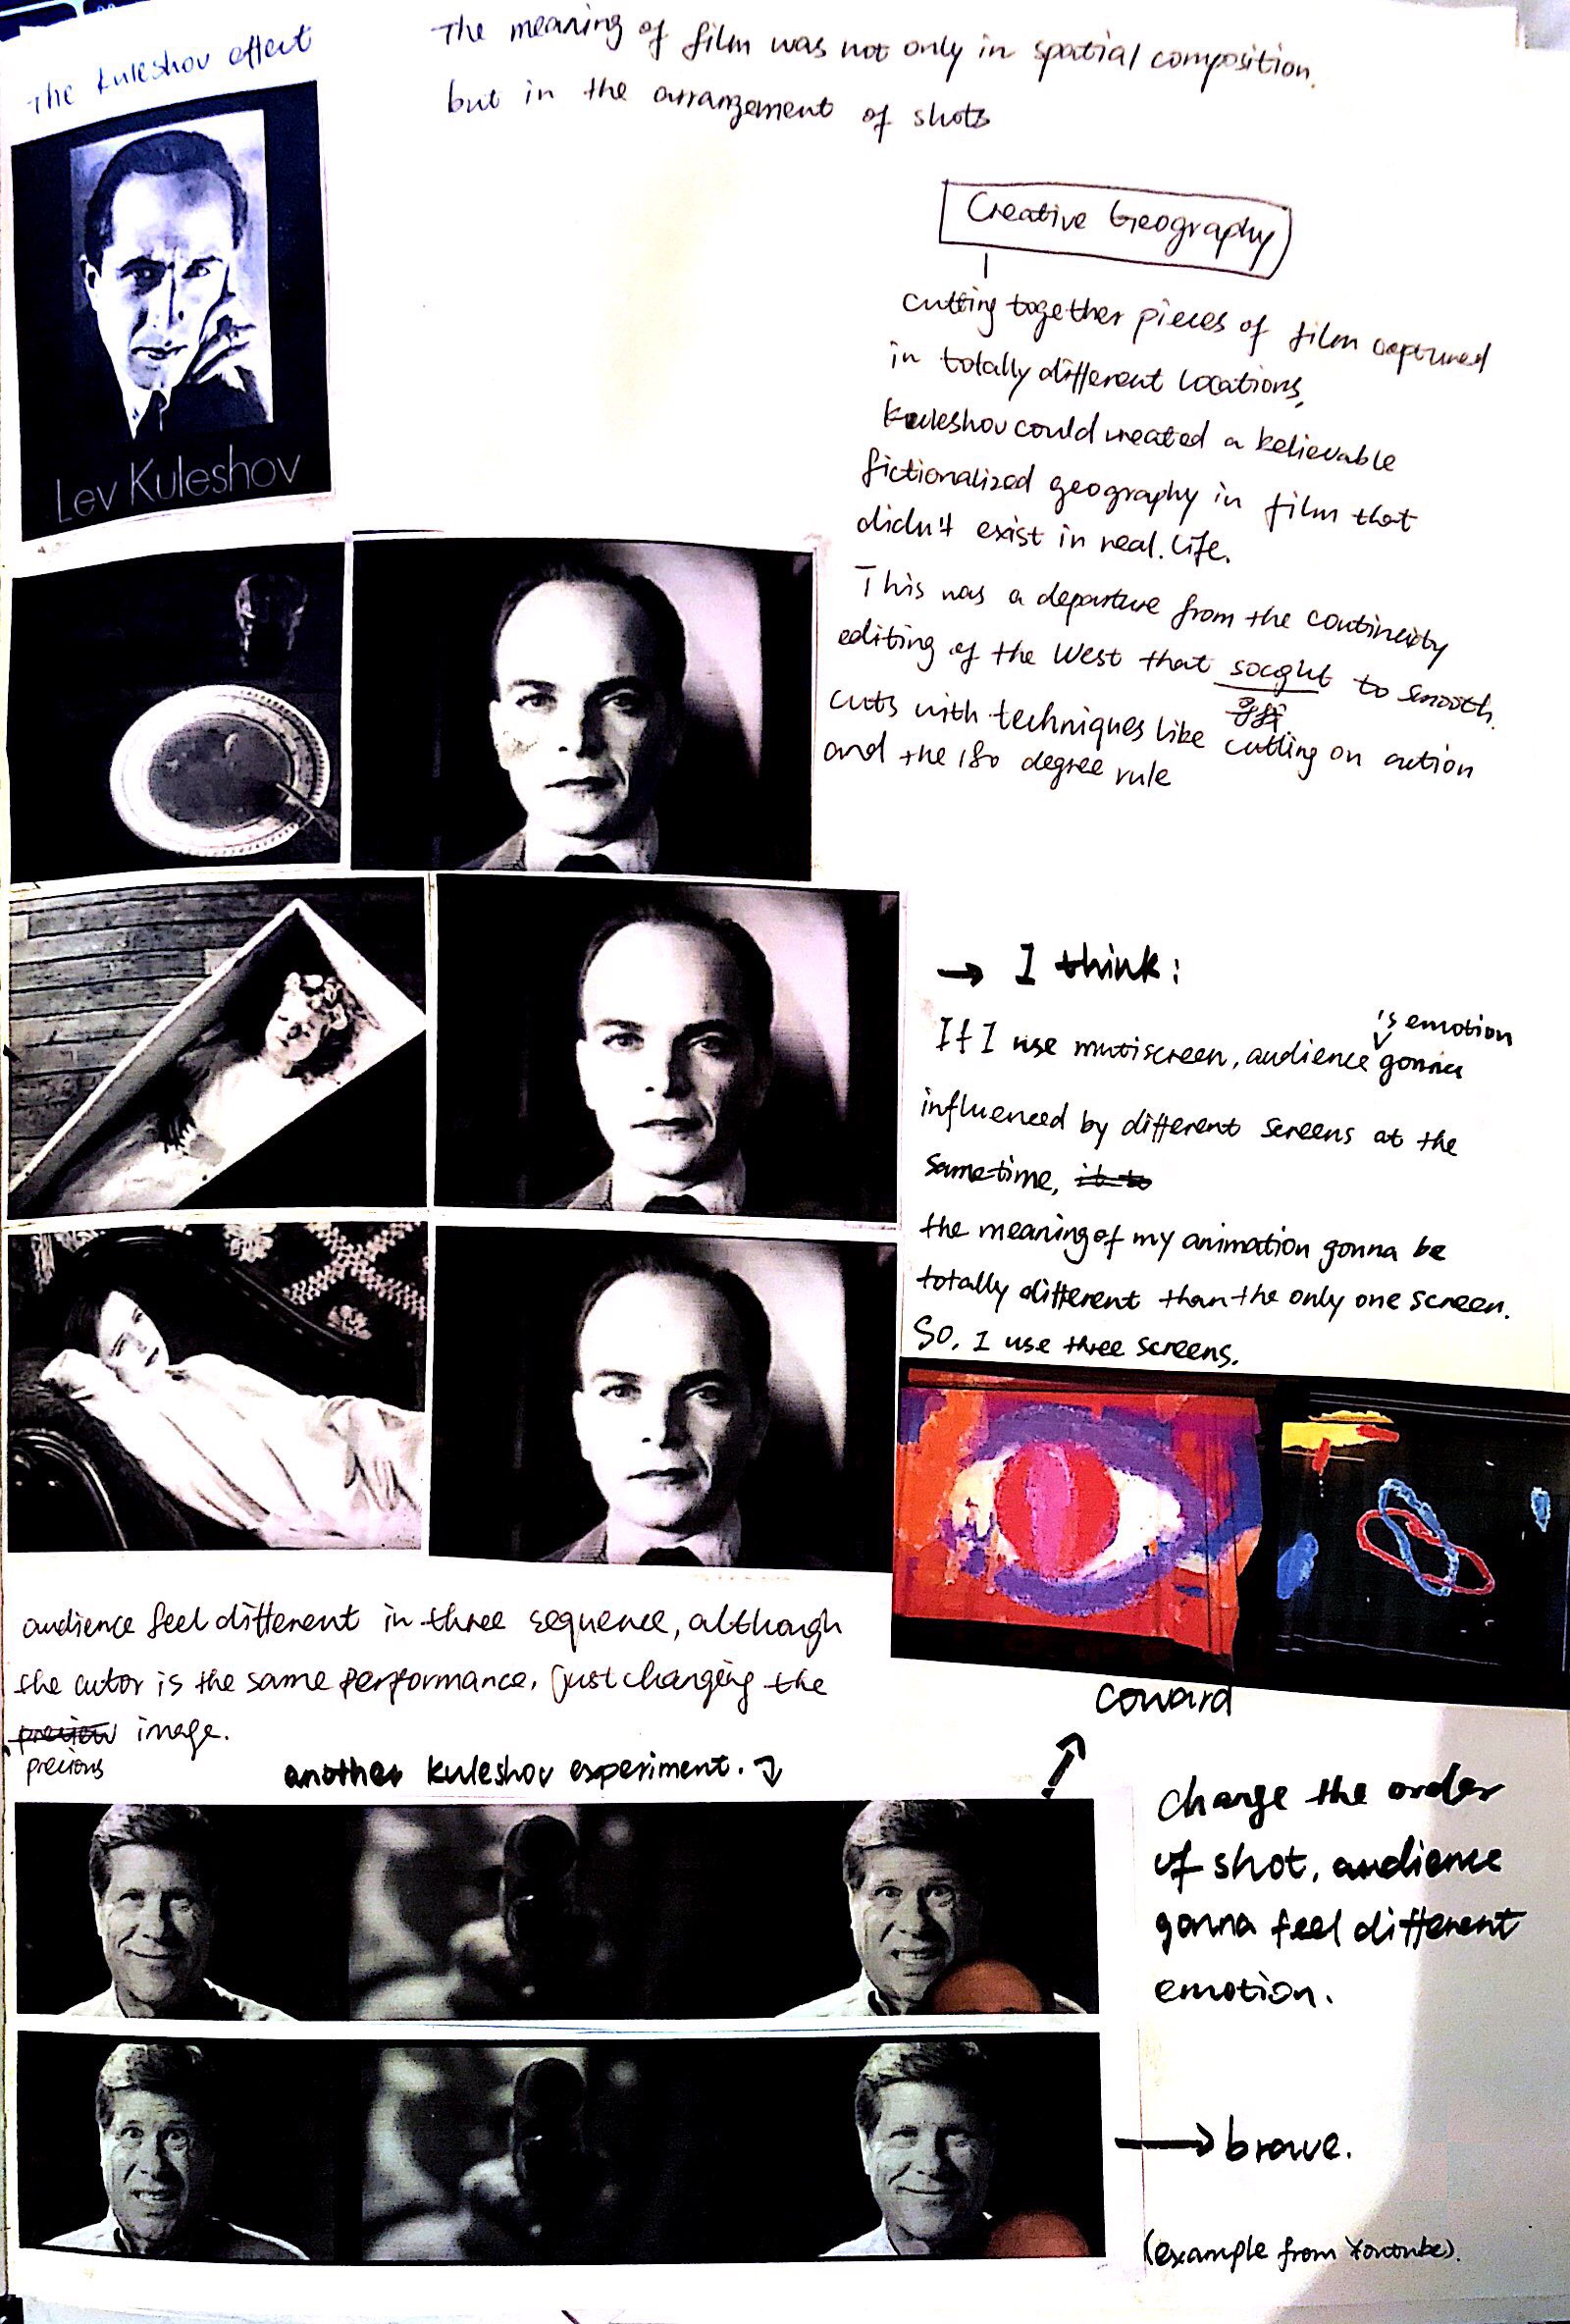 The Kuleshov effect
The meaning of film was not only in spatial composition.
but in the arrangement of shots
Lev Kuleshov
Creative Geography
cutting together pieces of film captured
in totally different locations,
Kuleshov could created a believable
fictionalized geography in film that
didn't exist in real. life.
This was a departure from the continuity
editing of the West that sought to smooth.
寻求
cuts with techniques like cutting on action
and the 180 degree rule
→ I think:
is emotion
If I use mutiscreen, audience gonna
influenced by different screens at the
sametime,
the meaning of my animation gonna be
totally different than the only one screen.
So, I use three screens.
audience feel different in three sequence, although
the actor is the same performance, just changing the
preview image.
previous
another kuleshov experiment.
coward
change the order
of shot, audience
gonna feel different
emotion.
→ brave.
(example from Youtube).